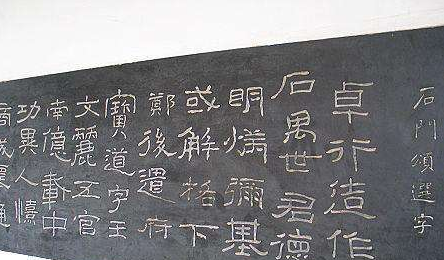 石門頌選字
卓行造作
石萬世君德
明煥彌基
或解格下
鄭後遣府
寶道字王
文麗五官
南億載中
功異人憘
通